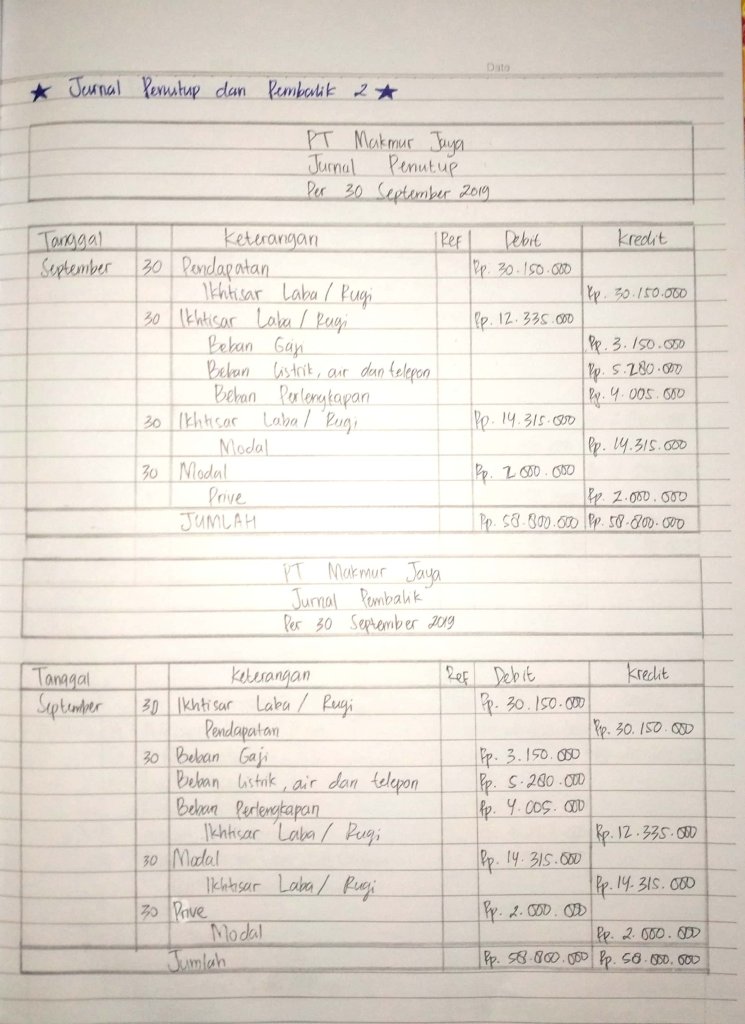 Date
★ Jurnal Penutup dan Pembalik 2 ★
PT Makmur Jaya
Jurnal Penutup
Per 30 September 2019
Tanggal Keterangan Ref Debit Kredit
September 30 Pendapatan Rp. 30.150.000
Ikhtisar Laba / Rugi Rp. 30.150.000
30 Ikhtisar Laba / Rugi Rp. 12.335.000
Beban Gaji Rp. 3.150.000
Beban Listrik, air dan telepon Rp. 5.280.000
Beban Perlengkapan Rp. 4.005.000
30 Ikhtisar Laba / Rugi Rp. 14.315.000
Modal Rp. 14.315.000
30 Modal Rp. 2.000.000
Prive Rp. 2.000.000
JUMLAH Rp. 58.800.000 Rp. 58.800.000
PT Makmur Jaya
Jurnal Pembalik
Per 30 September 2019
Tanggal Keterangan Ref Debit Kredit
September 30 Ikhtisar Laba / Rugi Rp. 30.150.000
Pendapatan Rp. 30.150.000
30 Beban Gaji Rp. 3.150.000
Beban Listrik, air dan telepon Rp. 5.280.000
Beban Perlengkapan Rp. 4.005.000
Ikhtisar Laba / Rugi Rp. 12.335.000
30 Modal Rp. 14.315.000
Ikhtisar Laba / Rugi Rp. 14.315.000
30 Prive Rp. 2.000.000
Modal Rp. 2.000.000
Jumlah Rp. 58.800.000 Rp. 58.800.000